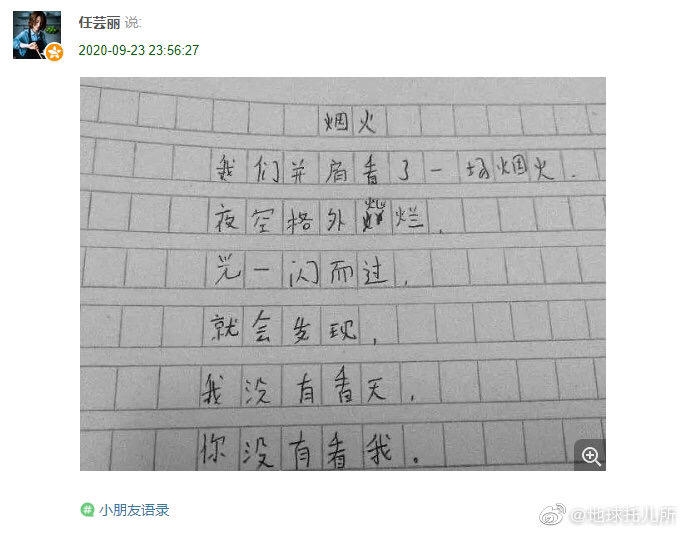 任芸丽 说:
2020-09-23 23:56:27
烟火
我们并肩看了一场烟火.
夜空格外灿烂.
光一闪而过,
就会发现,
我没有看天,
你没有看我。
小朋友语录
@地球托儿所